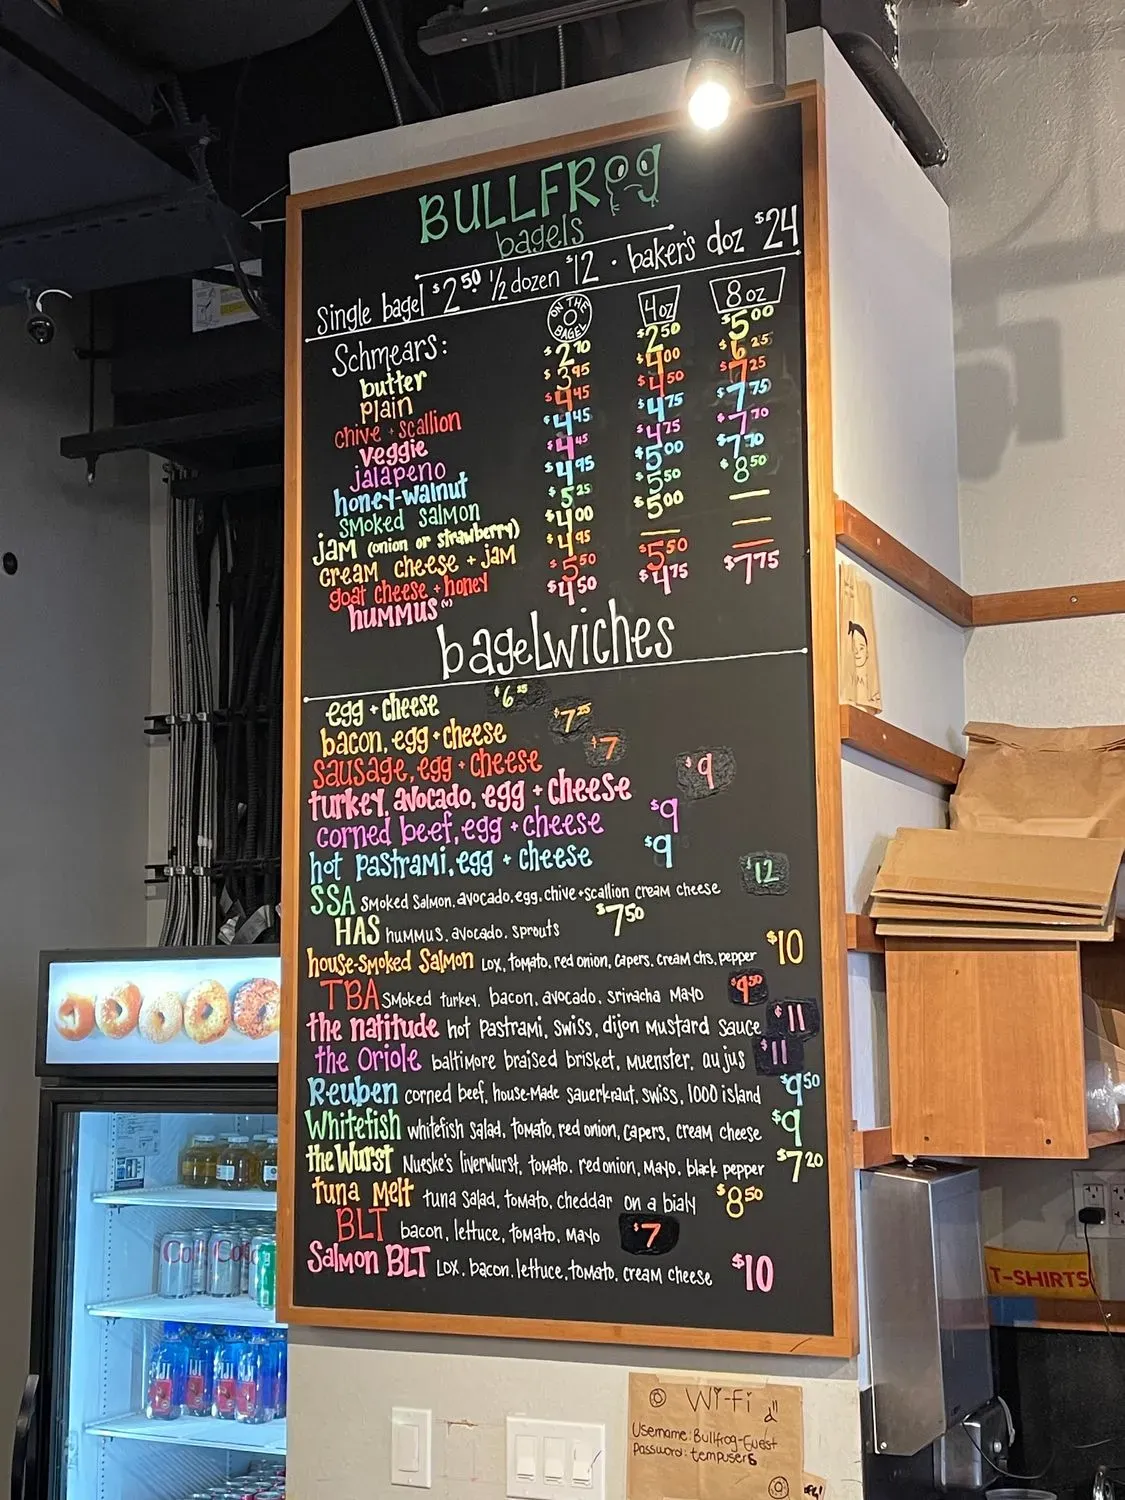 BULLFROg
bagels
Single bagel $2.50 1/2 dozen $12 · baker's doz $24
Schmears: ON THE BAGEL 4oz 8 oz
butter $2.70 $2.50 $5.00
plain $3.95 $4.00 $6.25
chive + scallion $4.45 $4.50 $7.25
veggie $4.45 $4.75 $7.75
jalapeno $4.45 $4.75 $7.70
honey-walnut $4.95 $5.00 $7.70
smoked salmon $5.25 $5.50 $8.50
jam (onion or strawberry) $4.00 $5.00 —
cream cheese + jam $4.95 — —
goat cheese + honey $5.50 $5.50 —
hummus (v) $4.50 $4.75 $7.75
bagelwiches
egg + cheese $6.25
bacon, egg + cheese $7.25
sausage, egg + cheese $7
turkey, avocado, egg + cheese $9
corned beef, egg + cheese $9
hot pastrami, egg + cheese $9
SSA smoked salmon, avocado, egg, chive + scallion cream cheese $12
HAS hummus, avocado, sprouts $7.50
house-smoked salmon Lox, tomato, red onion, capers, cream chs, pepper $10
TBA smoked turkey, bacon, avocado, sriracha mayo $9.50
the natitude hot pastrami, swiss, dijon mustard sauce $11
the Oriole baltimore braised brisket, muenster, au jus $11
Reuben corned beef, house-made sauerkraut, swiss, 1000 island $9.50
Whitefish whitefish salad, tomato, red onion, capers, cream cheese $9
the Wurst Nueske's liverwurst, tomato, red onion, mayo, black pepper $7.20
tuna melt tuna salad, tomato, cheddar on a bialy $8.50
BLT bacon, lettuce, tomato, mayo $7
Salmon BLT Lox, bacon, lettuce, tomato, cream cheese $10
T-SHIRTS
Coke
FIJI FIJI
Wi-Fi
Username: Bullfrog-Guest
Password: tempuser6